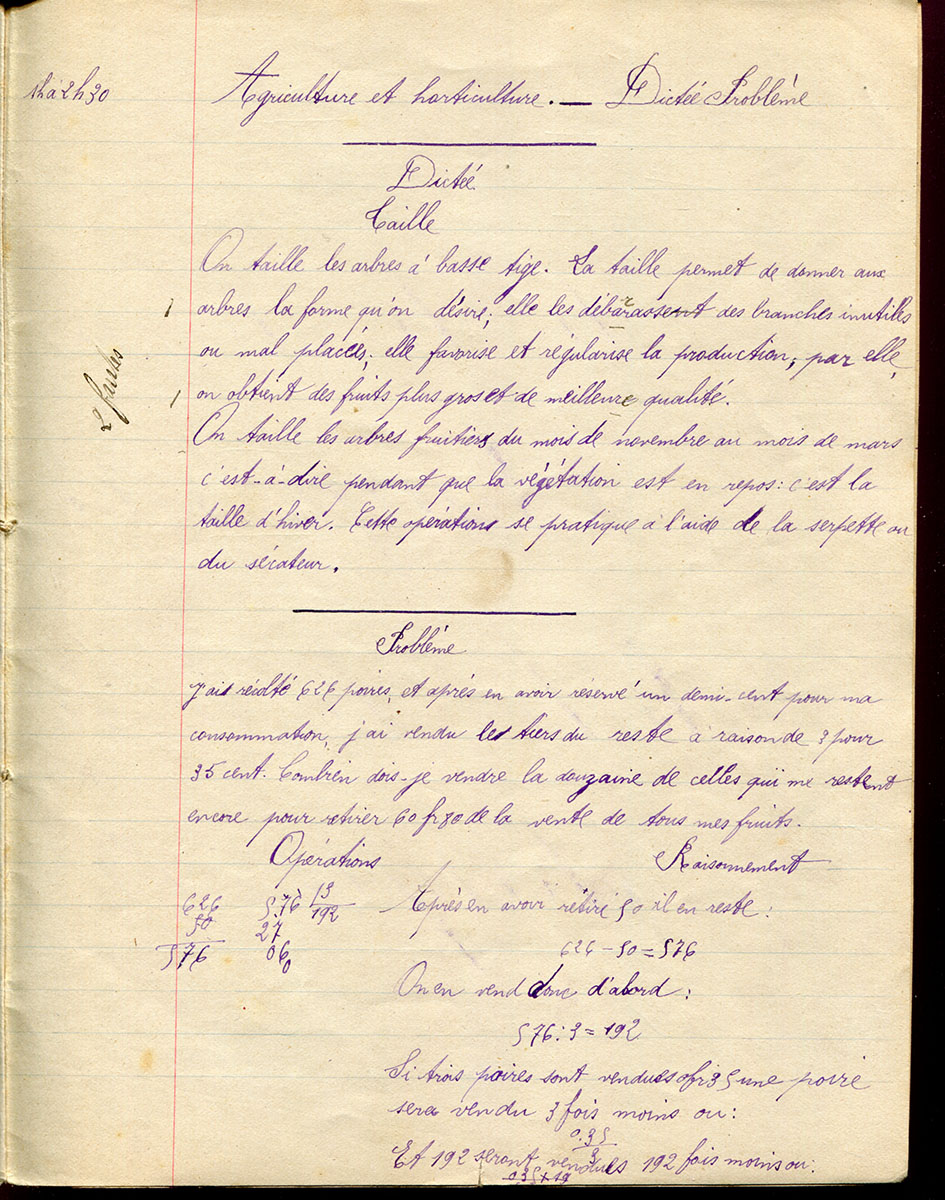 1h à 2h30
Agriculture et horticulture. — Dictée Problème
Dictée
Taille
On taille les arbres à basse tige. La taille permet de donner aux
arbres la forme qu'on désire; elle les débarassent des branches inutiles
ou mal placées; elle favorise et régularise la production; par elle,
2 fautes
on obtient des fruits plus gros et de meilleure qualité.
On taille les arbres fruitiers du mois de novembre au mois de mars
c'est-à-dire pendant que la végétation est en repos: c'est la
taille d'hiver. Cette opérations se pratique à l'aide de la serpette ou
du sécateur.
Problème
J'ai récolté 626 poires, et après en avoir réservé un demi-cent pour ma
consommation, j'ai vendu les tiers du reste a raison de 3 pour
35 cent. Combien dois-je vendre la douzaine de celles qui me restent
encore pour retirer 60 fr 80 de la vente de tous mes fruits.
Opérations Raisonnement
626 576 3 Après en avoir rétiré 50 il en reste:
50 27 192
576 06 626 - 50 = 576
0
On en vend donc d'abord:
576 : 3 = 192
Si trois poires sont vendues 0fr35 une poire
sera vendu 3 fois moins ou:
0.35
3
Et 192 seront vendues 192 fois moins ou:
0.35 x 19